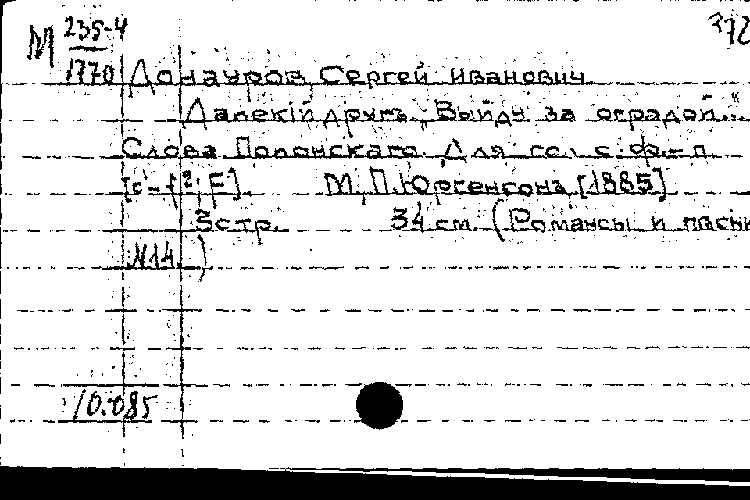 М 235-4
1770
Донауров, Сергей Иванович
Далекій другъ. „Выйду за оградой..."
Слова Полонскаго. Для гол. с ф.-п.
[c¹-f²; F]. М, П. Юргенсона [1885]
3 стр. 34 см. (Романсы и пѣсни
№14. )
10.085